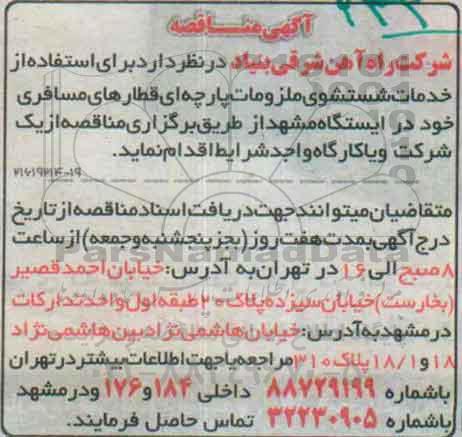 آگهی مناقصه
شرکت راه آهن شرقی بنیاد در نظر دارد برای استفاده از
خدمات شستشوی ملزومات پارچه ای قطارهای مسافری
خود در ایستگاه مشهد از طریق برگزاری مناقصه از یک
شرکت ویا کارگاه واجد شرایط اقدام نماید.
متقاضیان میتوانند جهت دریافت اسناد مناقصه از تاریخ
درج آگهی بمدت هفت روز (بجز پنجشنبه وجمعه) از ساعت
۸ صبح الی ۱۶ در تهران به آدرس: خیابان احمد قصیر
(بخارست) خیابان سیزده پلاک ۲۰ طبقه اول واحد تدارکات
در مشهد به آدرس: خیابان هاشمی نژاد بین هاشمی نژاد
۱۸ و ۱۸/۱ پلاک ۳۱۰ مراجعه یا جهت اطلاعات بیشتر در تهران
باشماره ۸۸۷۲۹۱۹۹ داخلی ۱۸۴ و ۱۷۶ ودر مشهد
باشماره ۳۲۲۳۰۹۰۵ تماس حاصل فرمایند.
ParsNamadData